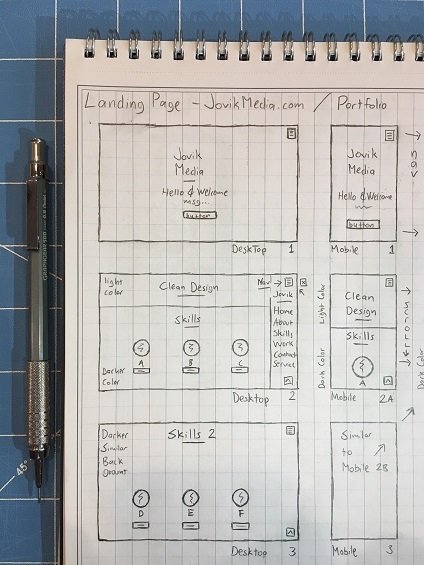 Landing Page - JovikMedia.com / Portfolio
Jovik
Media
Hello & Welcome
msg...
button
Desktop 1
Jovik
Media
Hello & Welcome
button
Mobile 1
Nav
light
color
Clean Design
Nav →
Skills
A
B
C
Darker
Color
Jovik
Home
About
Skills
Work
Contact
Service
Desktop 2
Light Color
Dark Color
Clean
Design
Skills
A
Mobile 2A
Scrolls
Dark Color
Darker
Similar
Back
Ground
Skills 2
D
E
F
Desktop 3
Similar
to
Mobile 2B
Mobile 3
GRAPHGEAR 500
0.5 Pentel
45°